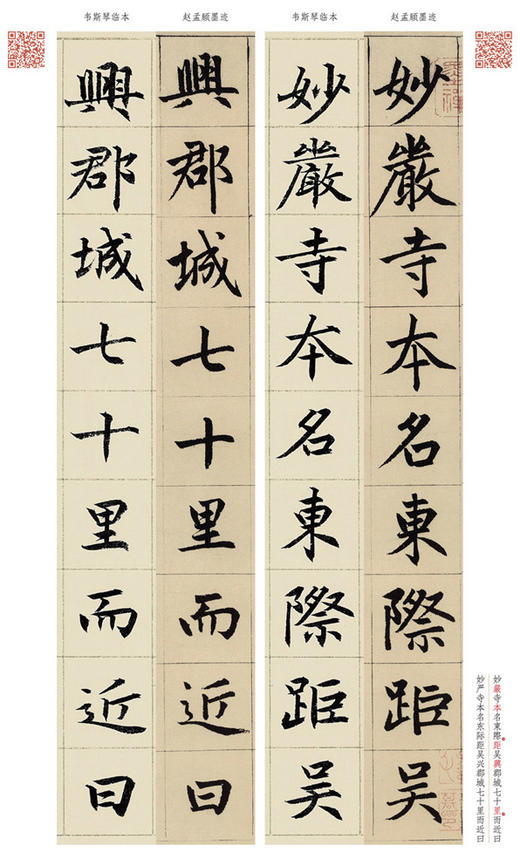 赵孟頫墨迹
妙嚴寺本名東際距吴
韦斯琴临本
妙嚴寺本名東際距吴
赵孟頫墨迹
興郡城七十里而近曰
韦斯琴临本
興郡城七十里而近曰
妙嚴寺本名東際。距吴興郡城七十里。而近曰
妙严寺本名东际距吴兴郡城七十里而近曰